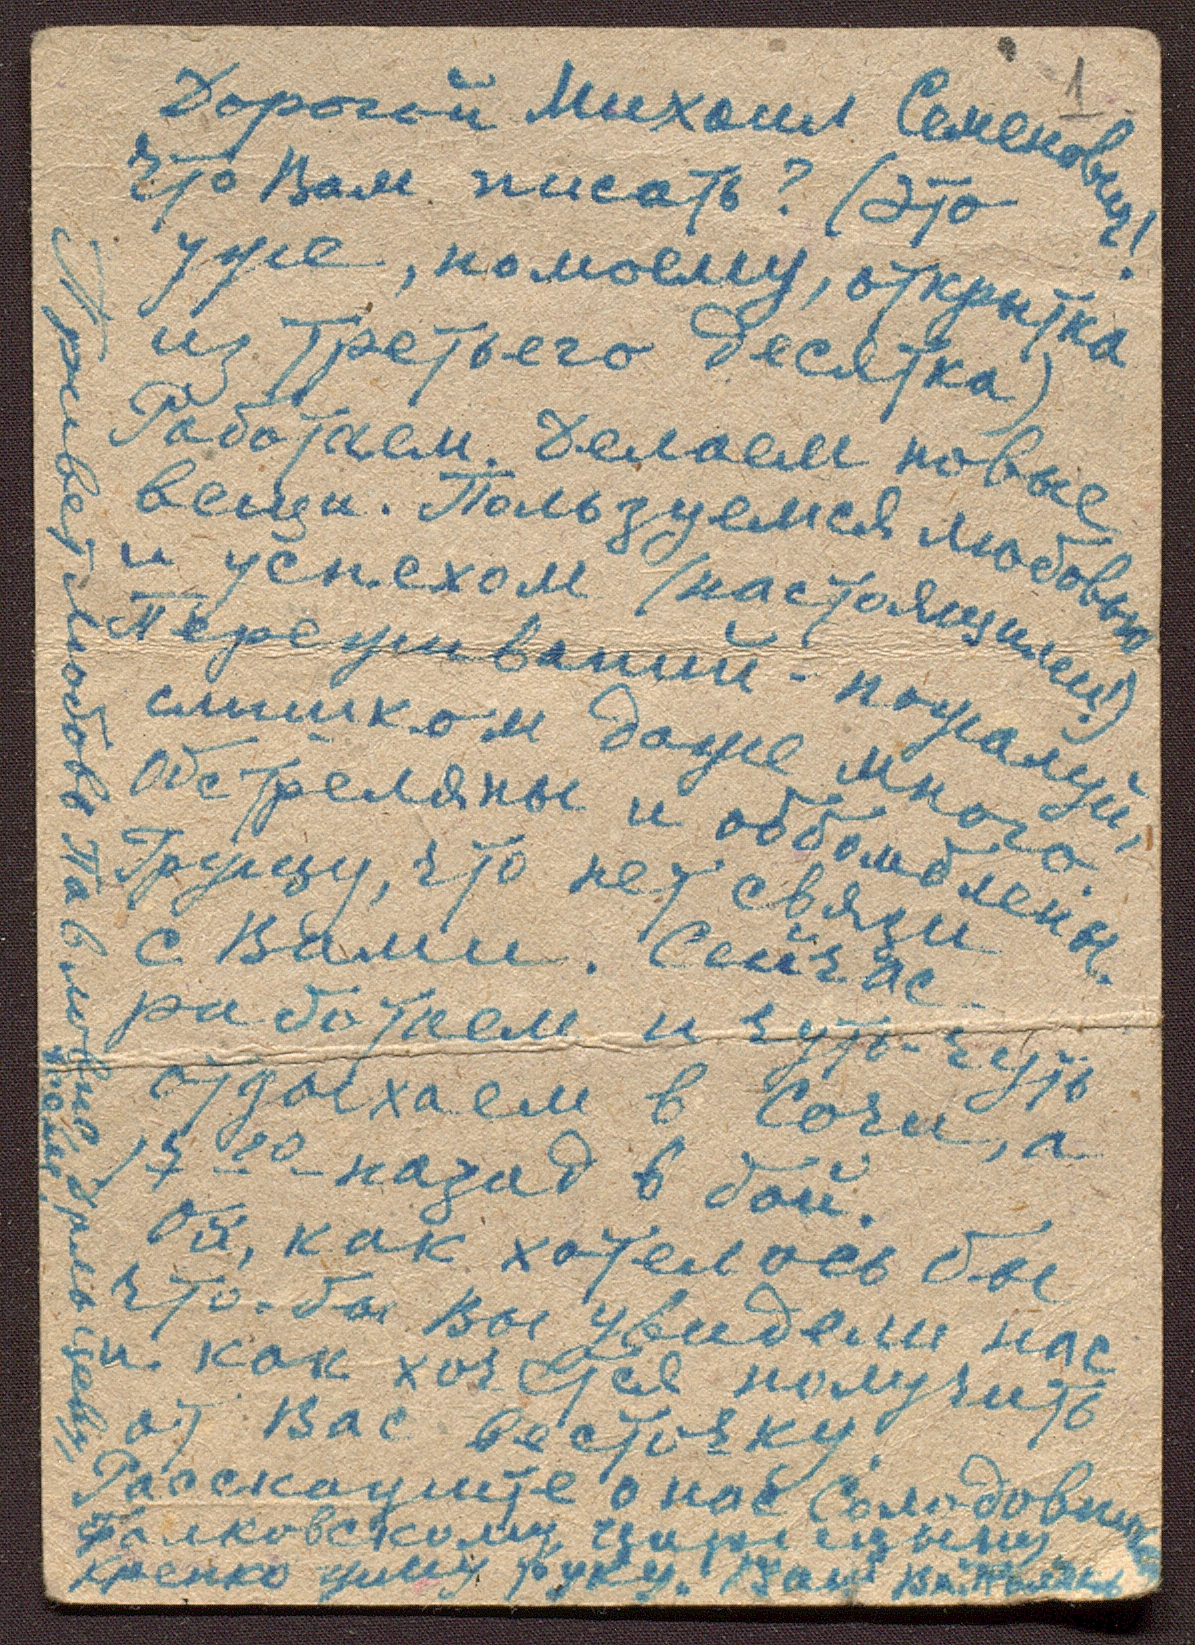 1
Дорогой Михаил Семенович!
Что Вам писать? (Это
уже, по моему, открытка
из третьего десятка)
Работаем. Делаем новые
вещи. Пользуемся любовью
и успехом (настоящими!)
Переживаний - пожалуй,
слишком даже много.
Обстреляны и оббомблены.
Грущу, что нет связи
с Вами. Сейчас
работаем и чуть-чуть
отдыхаем в Сочи, а
17-го - назад в бой.
Ой, как хотелось бы
что-бы Вы увидели нас
и как хочется получить
от Вас весточку.
Расскажите о нас Солодовникову
Фалковскому,
крепко жму руку. Ваш Вл. Поляков
Привет Любовь Павловне,